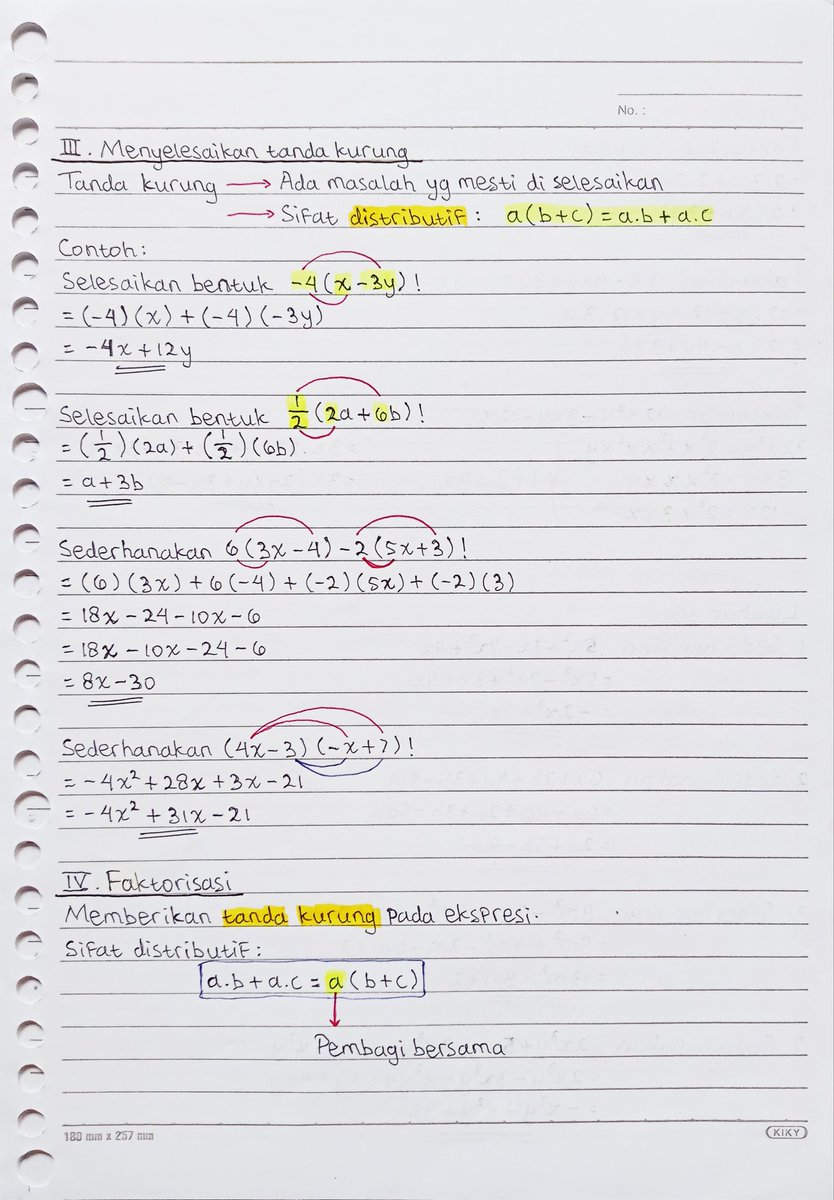 No. :
III. Menyelesaikan tanda kurung
Tanda kurung → Ada masalah yg mesti di selesaikan
→ Sifat distributif : a(b+c) = a.b + a.c
Contoh:
Selesaikan bentuk -4(x-3y)!
= (-4)(x) + (-4)(-3y)
= -4x + 12y
Selesaikan bentuk 1/2 (2a+6b)!
= (1/2)(2a) + (1/2)(6b)
= a + 3b
Sederhanakan 6(3x-4) - 2(5x+3)!
= (6)(3x) + 6(-4) + (-2)(5x) + (-2)(3)
= 18x - 24 - 10x - 6
= 18x - 10x - 24 - 6
= 8x - 30
Sederhanakan (4x-3)(-x+7)!
= -4x² + 28x + 3x - 21
= -4x² + 31x - 21
IV. Faktorisasi
Memberikan tanda kurung pada ekspresi.
Sifat distributif:
a.b + a.c = a(b+c)
Pembagi bersama
180 mm x 257 mm
KIKY